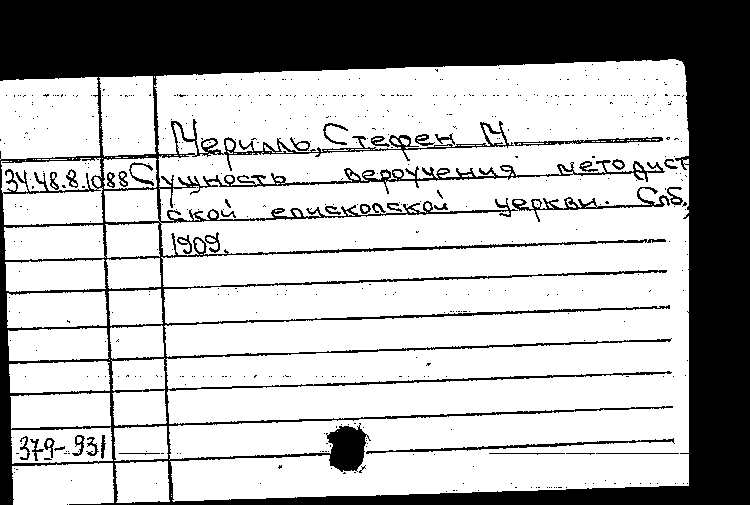 Мерилль, Стефен М
34.48.8.1088 Сущность вероучения методист
ской епископской церкви. Спб.,
1909.
379-931